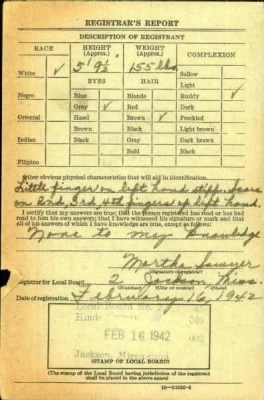 REGISTRAR'S REPORT
DESCRIPTION OF REGISTRANT
RACE HEIGHT (Approx.) WEIGHT (Approx.) COMPLEXION
White ✓ 5' 9½ 155 lbs. Sallow
EYES HAIR Light ✓
Negro Blue Blonde Ruddy
Gray ✓ Red Dark
Oriental Hazel Brown ✓ Freckled
Brown Black Light brown
Indian Black Gray Dark brown
Bald Black
Filipino
Other obvious physical characteristics that will aid in identification
Little finger on left hand stiff. Scars
on 2nd, 3rd, 4th fingers of left hand.
I certify that my answers are true; that the person registered has read or has had
read to him his own answers; that I have witnessed his signature or mark and that
all of his answers of which I have knowledge are true, except as follows:
None to my knowledge
Martha Sawyer
(Signature of registrar)
Registrar for Local Board 2 Jackson Miss.
(Number) (City or county) (State)
Date of registration February 16, 1942
Local Board No. 2
Hinds
FEB 16 1942
Jackson, Mississippi
(STAMP OF LOCAL BOARD)
(The stamp of the Local Board having jurisdiction of the registrant
shall be placed in the above space.)